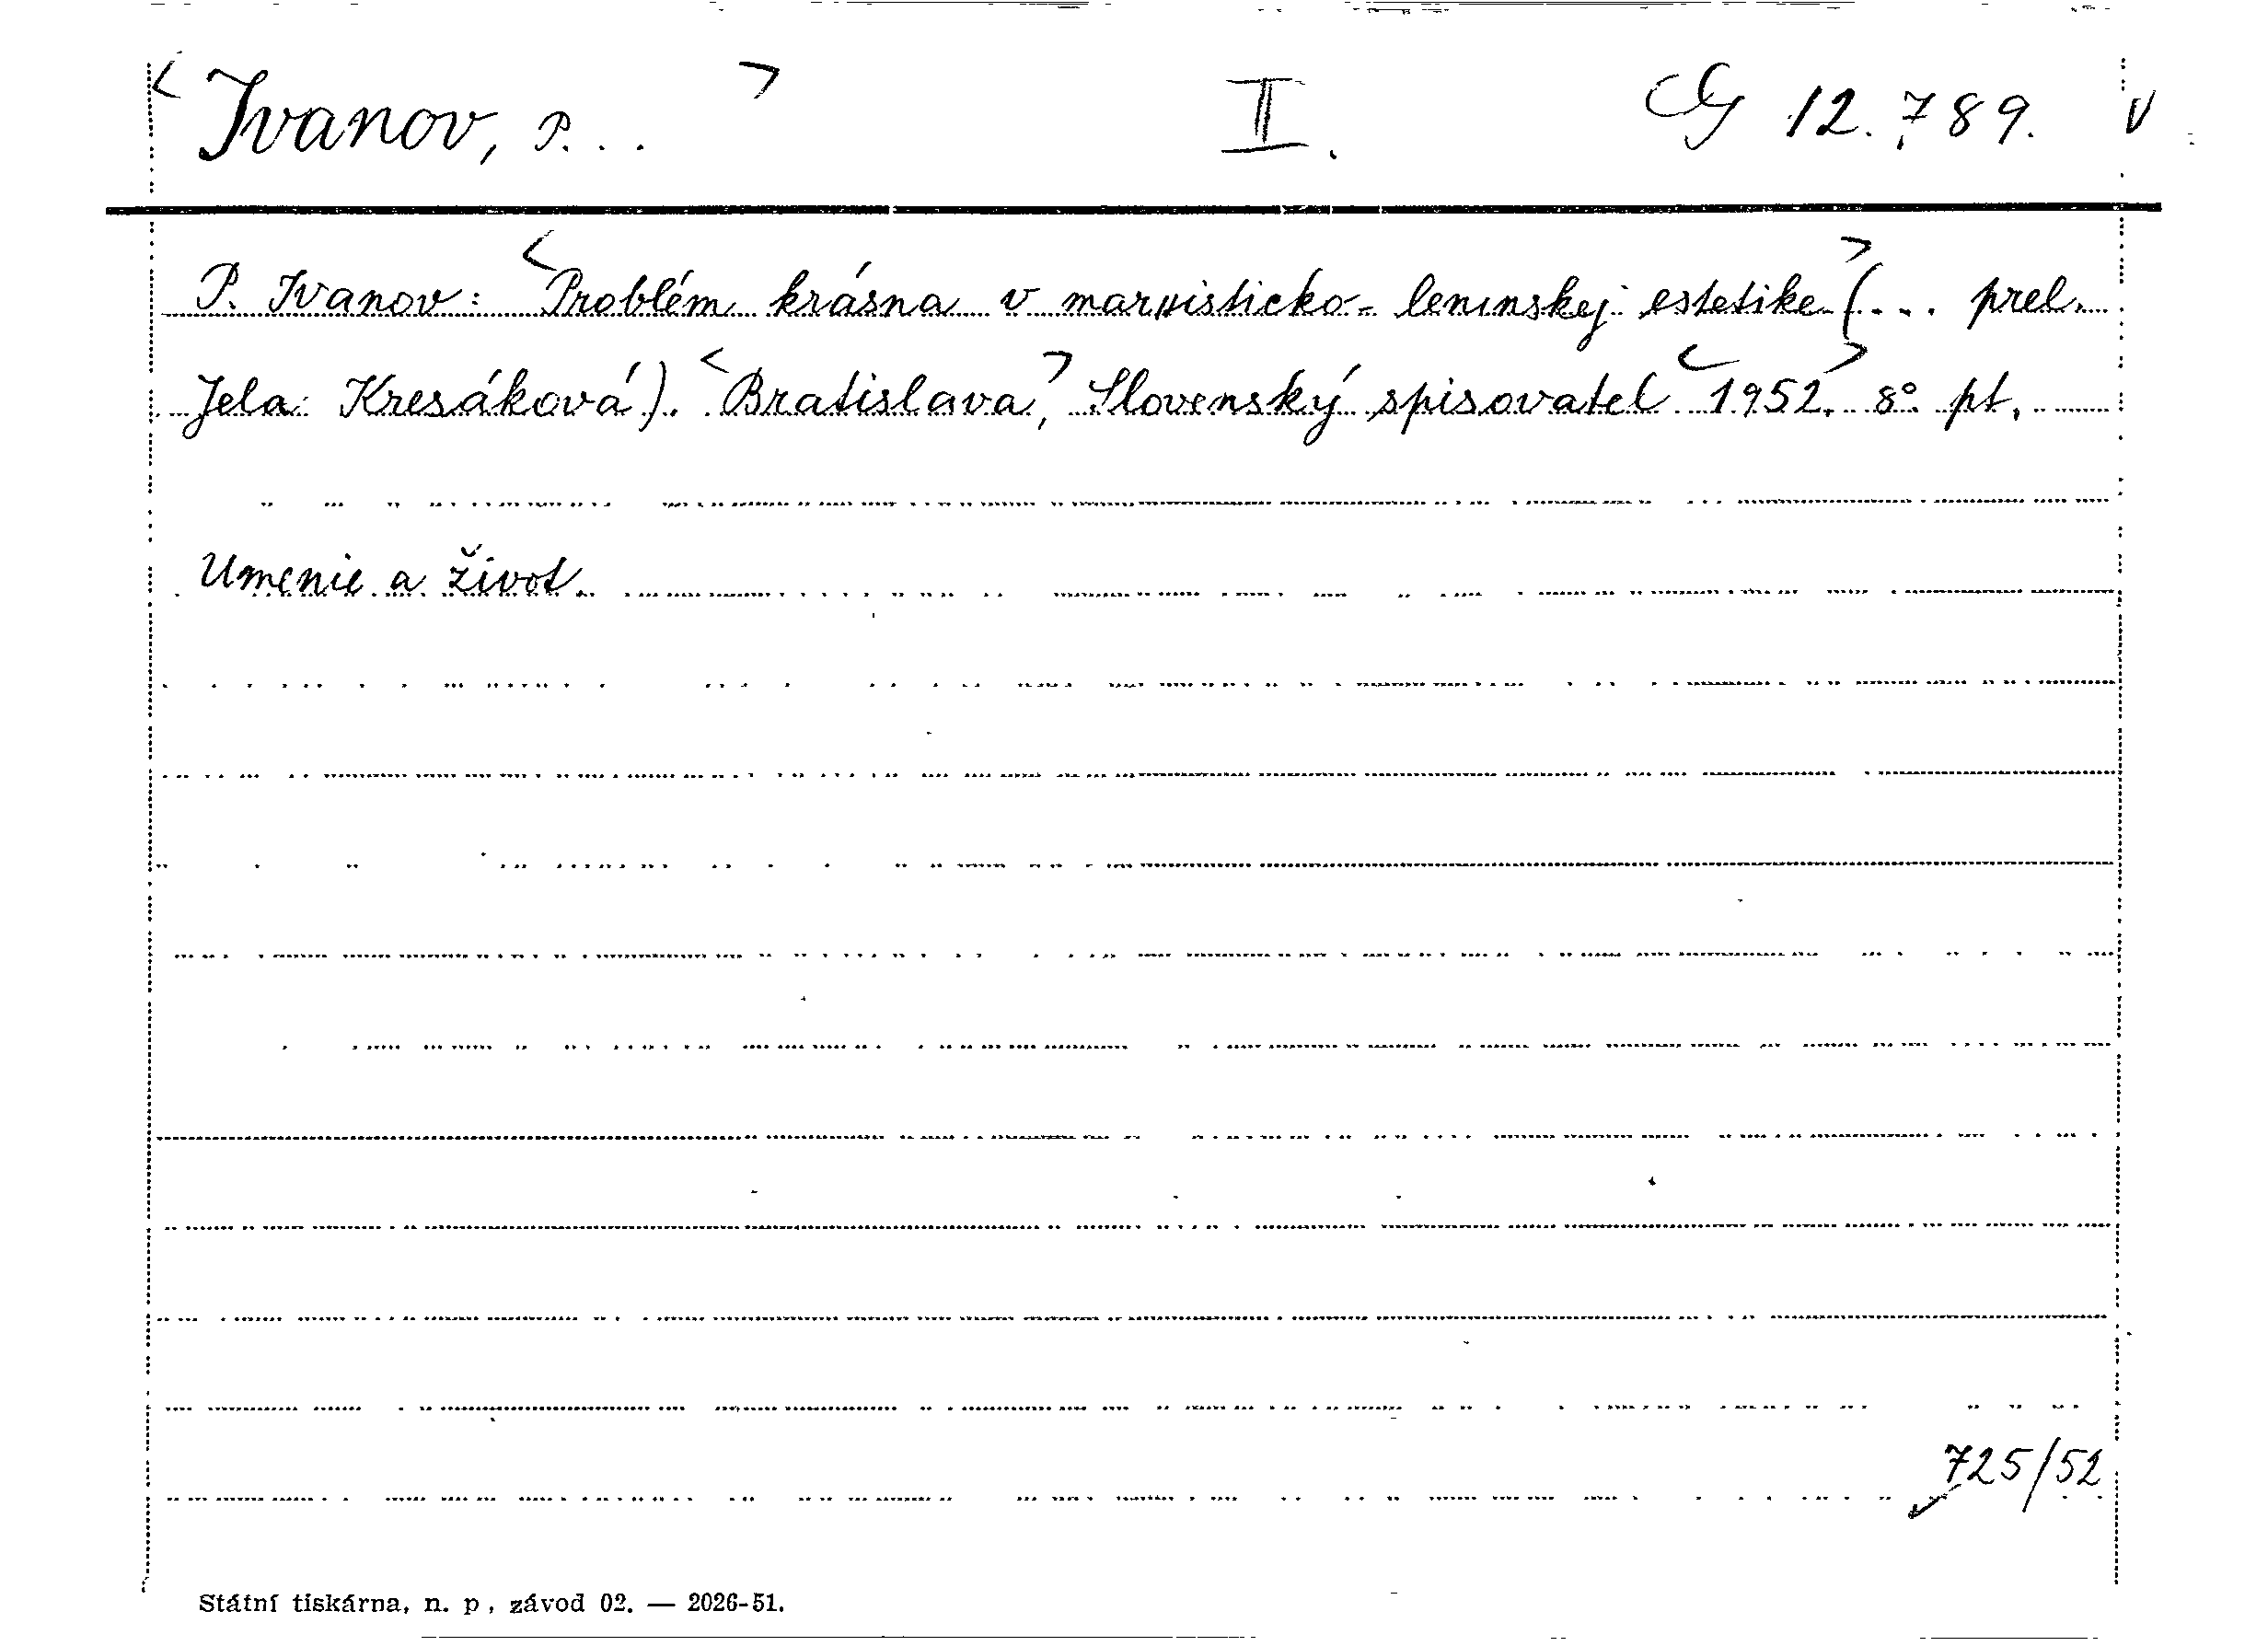 <Ivanov, P...> II. G 12.789. V
P. Ivanov: <Problém krásna v marxisticko-leninskej estetike> (... prel.
Jela Kresáková). <Bratislava>, Slovenský spisovatel <1952.> 8° pt.
Umenie a život.
725/52
Státní tiskárna, n. p., závod 02. — 2026-51.